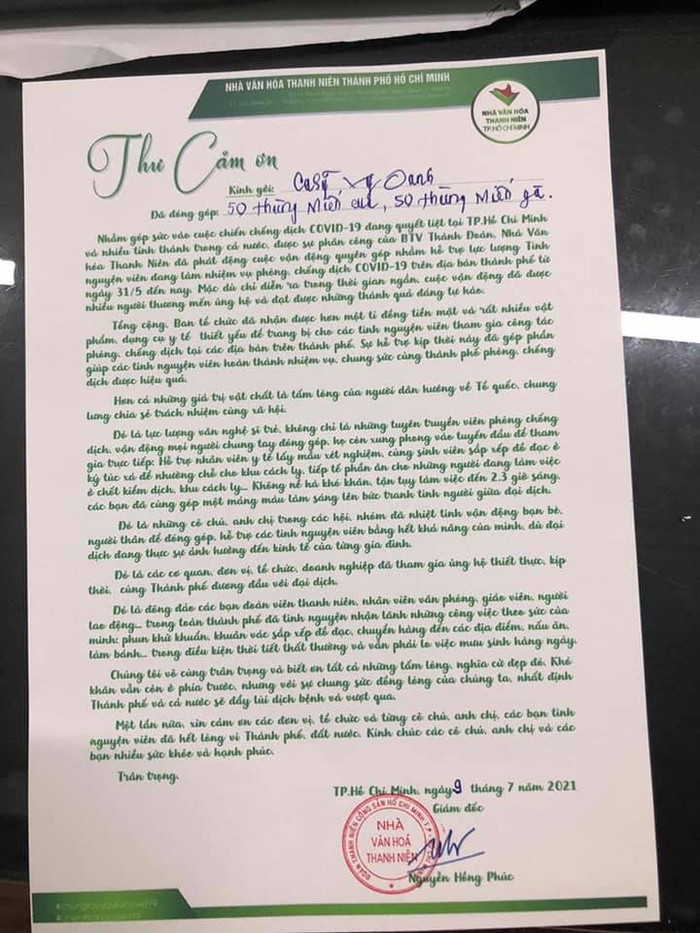 NHÀ VĂN HÓA THANH NIÊN THÀNH PHỐ HỒ CHÍ MINH
NHÀ VĂN HÓA
THANH NIÊN
TP.HỒ CHÍ MINH
Thư Cảm ơn
Kính gởi: Ca sỹ Vy Oanh
Đã đóng góp: 50 thùng Miến cua, 50 thùng Miến gà.
Nhằm góp sức vào cuộc chiến chống dịch COVID-19 đang quyết liệt tại TP.Hồ Chí Minh
và nhiều tỉnh thành trong cả nước, được sự phân công của BTV Thành Đoàn, Nhà Văn
hóa Thanh Niên đã phát động cuộc vận động quyên góp nhằm hỗ trợ lực lượng Tình
nguyện viên đang làm nhiệm vụ phòng, chống dịch COVID-19 trên địa bàn thành phố từ
ngày 31/5 đến nay. Mặc dù chỉ diễn ra trong thời gian ngắn, cuộc vận động đã được
nhiều người thương mến ủng hộ và đạt được những thành quả đáng tự hào.
Tổng cộng, Ban tổ chức đã nhận được hơn một tỉ đồng tiền mặt và rất nhiều vật
phẩm, dụng cụ y tế thiết yếu để trang bị cho các tình nguyện viên tham gia công tác
phòng, chống dịch tại các địa bàn trên thành phố. Sự hỗ trợ kịp thời này đã góp phần
giúp các tình nguyện viên hoàn thành nhiệm vụ, chung sức cùng thành phố phòng, chống
dịch được hiệu quả.
Hơn cả những giá trị vật chất là tấm lòng của người dân hướng về Tổ quốc, chung
lưng chia sẻ trách nhiệm cùng xã hội.
Đó là lực lượng văn nghệ sĩ trẻ, không chỉ là những tuyên truyền viên phòng chống
dịch, vận động mọi người chung tay đóng góp, họ còn xung phong vào tuyến đầu để tham
gia trực tiếp: Hỗ trợ nhân viên y tế lấy mẫu xét nghiệm, cùng sinh viên sắp xếp đồ đạc ở
ký túc xá để nhường chỗ cho khu cách ly, tiếp tế phần ăn cho những người đang làm việc
ở chốt kiểm dịch, khu cách ly... Không nề hà khó khăn, tận tụy làm việc đến 2,3 giờ sáng,
các bạn đã cùng góp một mảng màu làm sáng lên bức tranh tình người giữa đại dịch.
Đó là những cô chú, anh chị trong các hội, nhóm đã nhiệt tình vận động bạn bè,
người thân để đóng góp, hỗ trợ các tình nguyện viên bằng hết khả năng của mình, dù đại
dịch đang thực sự ảnh hưởng đến kinh tế của từng gia đình.
Đó là các cơ quan, đơn vị, tổ chức, doanh nghiệp đã tham gia ủng hộ thiết thực, kịp
thời, cùng Thành phố đương đầu với đại dịch.
Đó là đông đảo các bạn đoàn viên thanh niên, nhân viên văn phòng, giáo viên, người
lao động... trong toàn thành phố đã tình nguyện nhận lãnh những công việc theo sức của
mình: phun khử khuẩn, khuân vác sắp xếp đồ đạc, chuyển hàng đến các địa điểm, nấu ăn,
làm bánh... trong điều kiện thời tiết thất thường và vẫn phải lo việc mưu sinh hàng ngày.
Chúng tôi vô cùng trân trọng và biết ơn tất cả những tấm lòng, nghĩa cử đẹp đó. Khó
khăn vẫn còn ở phía trước, nhưng với sự chung sức đồng lòng của chúng ta, nhất định
Thành phố và cả nước sẽ đẩy lùi dịch bệnh và vượt qua.
Một lần nữa, xin cảm ơn các đơn vị, tổ chức và từng cô chú, anh chị, các bạn tình
nguyện viên đã hết lòng vì Thành phố, đất nước. Kính chúc các cô chú, anh chị và các
bạn nhiều sức khỏe và hạnh phúc.
Trân trọng.
TP.Hồ Chí Minh, ngày 9 tháng 7 năm 2021
Giám đốc
NHÀ
VĂN HOÁ
THANH NIÊN
Nguyễn Hồng Phúc